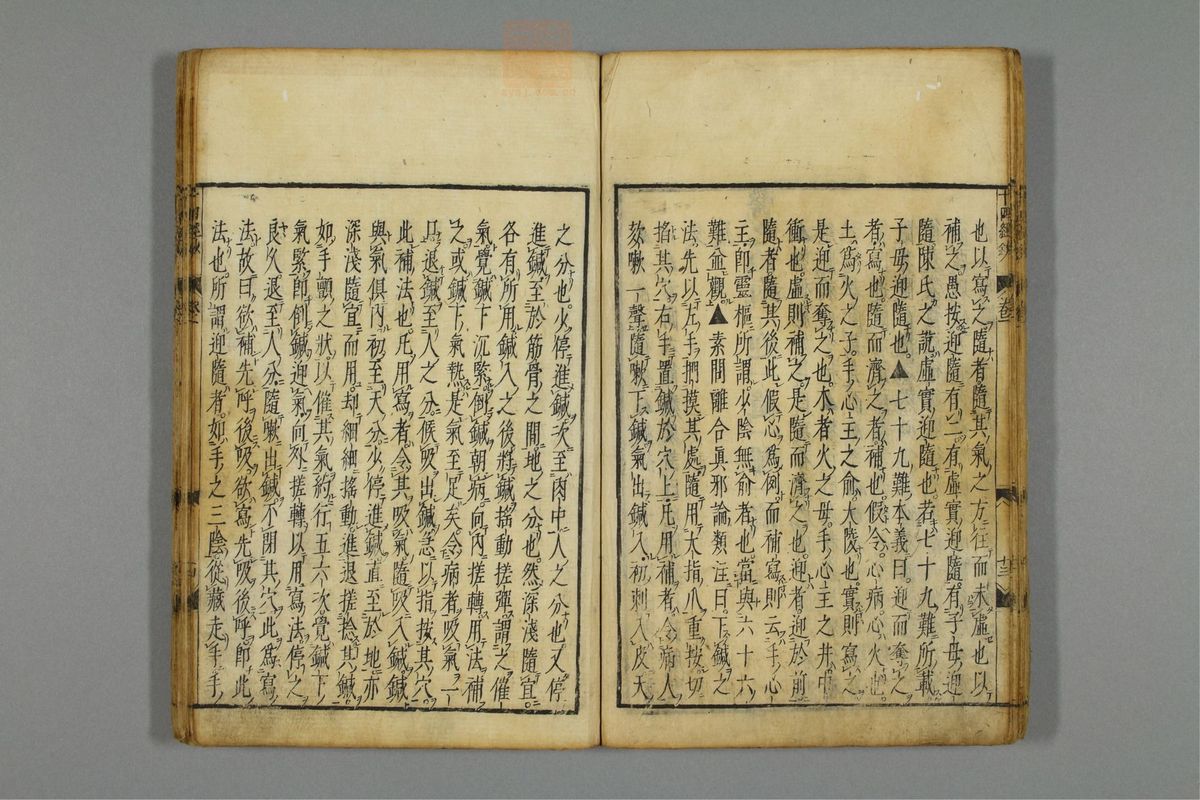 也以寫之隨者隨其氣之方往而未虛也以
補之愚按迎隨有二有虛實迎隨有子母迎
隨陳氏之說虛實迎隨也若七十九難所載
子母迎隨也▲七十九難本義曰迎而奪之
者寫也隨而濟之者補也假令心病心火也
土爲火之子手心主之俞大陵也實則寫之
是迎而奪之也木者火之母手心主之井中
衝也虛則補之是隨而濟之也迎者迎於前
隨者隨其後此假心爲例而補寫則云手心
主即靈樞所謂少陰無俞者也當與六十六
難並觀▲素問離合眞邪論類注曰下鍼之
法先以左手捫摸其處隨用大指爪重按切
掐其穴右手置鍼於穴上凡補者令病人
欬嗽一聲隨嗽下鍼氣出鍼入初刺入皮天
之分也少停進鍼次至肉中人之分也又停
進鍼至於筋骨之間地之分也然深淺隨宜
各有所用鍼入之後將鍼搖動搓彈謂之催
氣覺鍼下沉緊倒鍼朝病向內搓轉用法補
之或鍼下氣熱是氣至足矣令病者吸氣一
口退鍼至人之分候吸出鍼急以指按其穴
此補法也凡用寫者令其吸氣隨吸入鍼鍼
與氣俱內初至天分少停進鍼直至於地亦
深淺隨宜而用却細細搖動進退搓捻其鍼
如手顫之狀以催其氣約行五六次覺鍼下
氣緊即倒鍼迎氣向外搓轉以用寫法停之
良久退至人分隨嗽出鍼不閉其穴此爲寫
法故曰欲補先呼後吸欲寫先吸後呼即此
法也所謂迎隨者如手之三陰從藏走手手